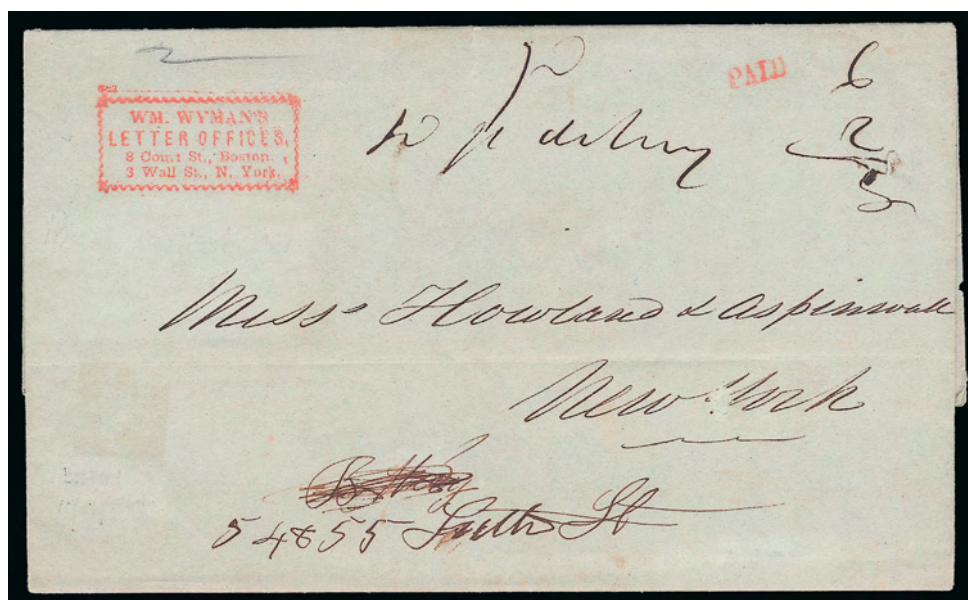 WM. WYMAN'S
LETTER OFFICES,
8 Court St., Boston.
3 Wall St., N. York.
PAID
6
2
Mess^s Howland & Aspinwall
New York
54 & 55 South St